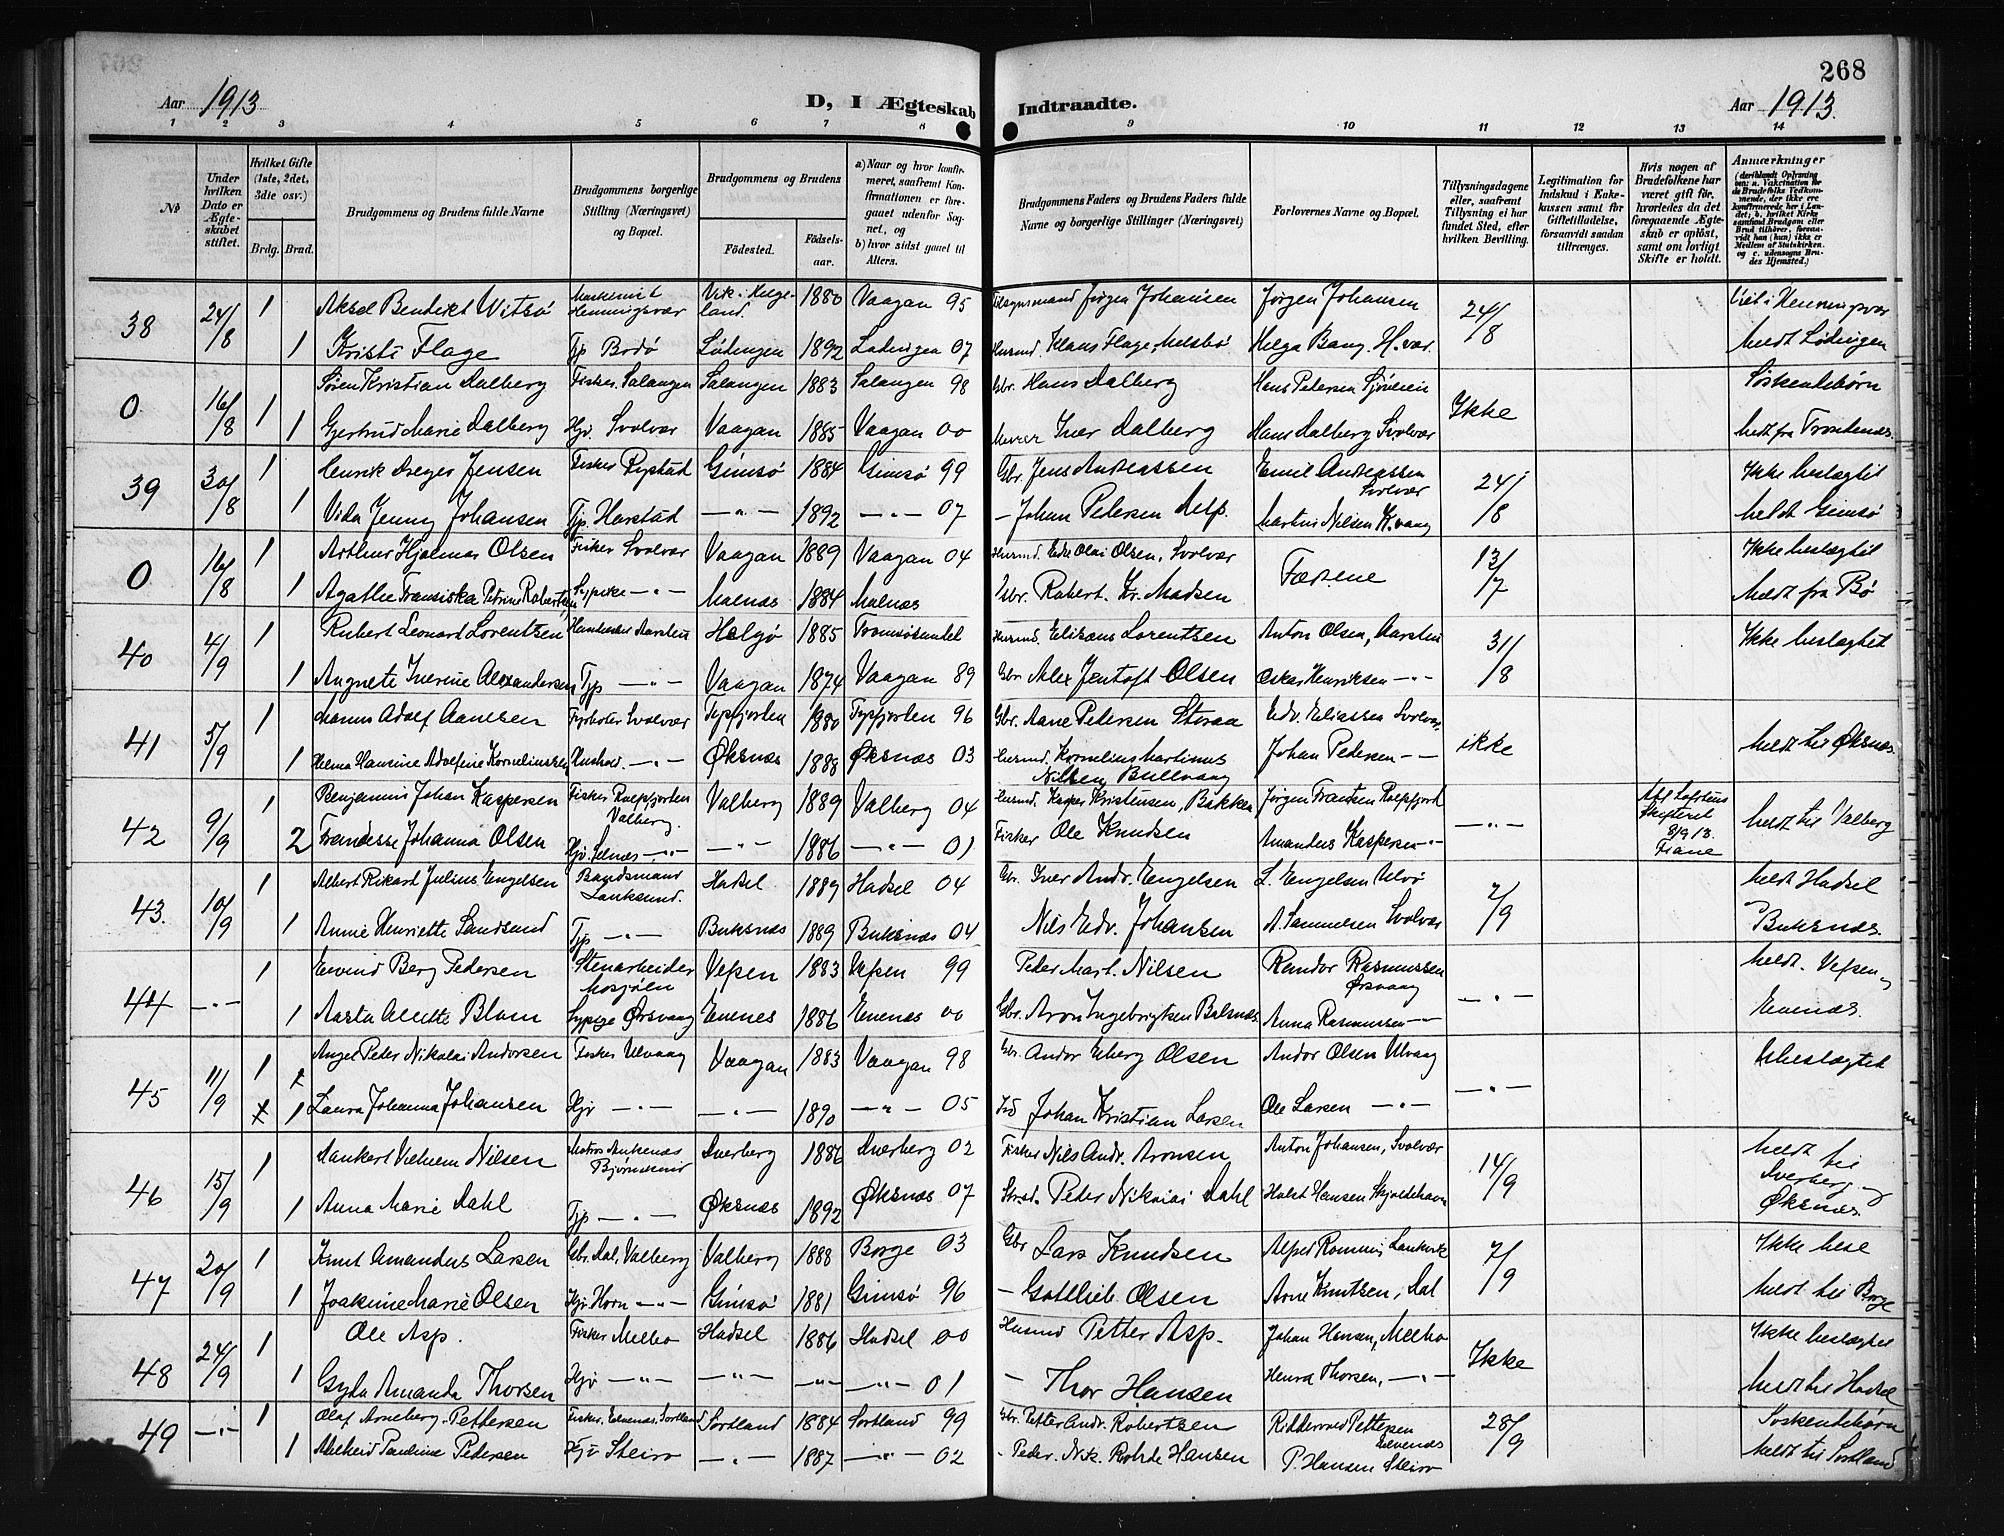 268
Aar 1913 D, I Ægteskab Indtraadte. Aar 1913.
1 2 3 4 5 6 7 8 9 10 11 12 13 14
No
Under hvilken Dato er Ægteskabet stiftet.
Hvilket Gifte (1ste, 2det, 3die osv.)
Brdg. Brud.
Brudgommens og Brudens fulde Navne
Brudgommens borgerlige Stilling (Næringsvei) og Bopæl.
Brudgommens og Brudens
Fødested. Fødselsaar.
a) Naar og hvor konfirmeret, saafremt Konfirmationen er foregaaet udenfor Sognet, og
b) hvor sidst gaaet til Alters.
Brudgommens Faders og Brudens Faders fulde Navne og borgerlige Stillinger (Næringsvei)
Forlovernes Navne og Bopæl.
Tillysningsdagene eller, saafremt Tillysning ei har fundet Sted, efter hvilken Bevilling.
Legitimation for Indskud i Enkekassen samt for Giftetilladelse, forsaavidt saadan tiltrænges.
Hvis nogen af Brudefolkene har været gift før, hvorledes da det foregaaende Ægteskab er opløst, samt om lovligt Skifte er holdt.
Anmærkninger
(deriblandt Oplysning om: a. Vakcination for de Brudefolks Vedkommende, der ikke ere konfirmerede her i Landet; b. hvilket Kirkesamfund Brudgom eller Brud tilhører, forsaavidt han (hun) ikke er Medlem af Statskirken, og c. udensogns Brudes Hjemsted.)
38 24/8 1 Aksel Benedikt Witsø Henningsvær Vik i Helgeland. 1880 Vaagan 95 Jørgen Johansen Jørgen Johansen 24/8
1 Kristi Flage Tjp Bodø Lødingen 1892 Lødingen 07 Husmd. Klaus Flage, Helga Bang. H.vær. meldt Lødingen
0. 16/8 1 Søren Kristian Dalberg Fisker Salangen Salangen 1883 Salangen 98 Gbr. Hans Dalberg Hans Petersen Sjøveien Ikke Søskendebørn
1 Gjertrud Marie Dalberg Hjv. Svolvær Vaagan 1885 Vaagan 00 Iver Dalberg Hans Dalberg Svolvær meldt fra Trondenæs.
39 30/8 1 Henrik Dreyer Jensen Fisker Rystad Gimsø 1884 Gimsø 99 Gbr. Jens Andreassen Emil Andreassen Svolvær 24/8 Ikke beslægtet
1 Vida Jenny Johansen Tjp. Harstad —〃— 1892 —〃— 07 – Johan Petersen Delp. Martin Nilsen K.vaag meldt Gimsø
0 16/8 1 Arthur Hjalmar Olsen Fisker Svolvær Vaagan 1889 Vaagan 04 Husmd. Edv. Olai Olsen, Svolvær Fædrene 13/7 Ikke beslægtet
1 Agathe Fransiska Petrine Robertsen Sypike —〃— Malnæs 1884 Malnæs Gbr. Robert. Kr. Madsen meldt fra Bø
40 4/9 1 Robert Leonart Lorentsen Helgø 1885 Tromsøsundet Husmd. Elizæus Lorentsen Anton Olsen, 31/8 Ikke beslægtet
1 Angnete Iverine Alexandersen Tjp —〃— Vaagan 1874 Vaagan 89 Gbr. Alex Jentoft Olsen Oskar Henriksen —〃—
41 5/9 1 Adolf Aanesen Svolvær Tysfjorden 1880 Tysfjorden 96 Gbr. Aane Petersen Storaa Edv. Eliassen Svolvær ikke
1 Helma Hansine Adolfine Korneliussen Hushold. —〃— Øksnæs 1888 Øksnæs 03 Husmd. Kornelius Martinus Nilsen Bullvaag Johan Pedersen —〃— meldt til Øksnæs
42 9/9 1 Benjamin Johan Kaspersen Fisker Rolfsfjorden Valberg. Valberg 1889 Valberg 04 Husmd. Kasper Kristensen, Bakken Jørgen Frantsen Rolfsfjord —〃— Skifteret 8/9 13. meldt til Valberg
2 Johanna Olsen Hjv. —〃— —〃— 1886 —〃— 01 Fisker Ole Knudsen Amandus Kaspersen —〃—
43. 10/9 1 Albert Rikart Julius Engelsen Hadsel 1889 Hadsel 04 Gbr. Iver Andr. Engelsen L. Engelsen Ulvø 7/9 meldt Hadsel
1 Annie Henriette Sandsund Tjp —〃— Buksnæs 1889 Buksnæs 04 Nils Edv. Johansen A. Samuelsen Svolvær Buksnæs.
44 —〃— 1 Eivind Berg Pedersen Stenarbeider Mosjøen Vefsen 1883 Vefsen 99 Peder Mart. Nilsen Reidar Rasmussen Ørsvaag —〃— meldt. Vefsen og
1 Aasta Alette Blom Sypige Ørsvaag Evenes 1886 Evenes 00 Gbr. Aron Ingebrigtsen Balsnæs Anna Rasmussen —〃— Evenæs.
45 11/9 1 Angel Peter Nikolai Andorsen Fisker Ulvaag Vaagan 1883 Vaagan 98 Gbr. Andor Esberg Olsen Andor Olsen Ulvaag —〃— Ubeslægtet
1 Laura Johanna Johansen Hjv —〃— —〃— 1890 —〃— 05 Johan Kristian Larsen Ole Larsen —〃—
46 15/9 1 Vilhelm Nilsen Dverberg 1886 Dverberg 02 Fisker Nils Andr. Aronsen Anton Johansen, Svolvær 14/9 meldt til Dverberg og Øksnæs.
1 Anna Marie Dahl Tjp —〃— Øksnæs 1892 Øksnæs 07 Peter Nikolai Dahl Halst Hansen Skjoldehavn
47 20/9 1 Knut Amandus Larsen Gbr. Dal, Valberg Valberg 1888 Borge 03 Gbr Lars Knudsen Alfred Lankvik 7/9 Ikke besl
1 Joakine Marie Olsen Hjv Horn —〃— Gimsø 1881 Gimsø 96 – Gottlieb Olsen Arne Knutsen, Dal meldt til Borge
48 24/9 1 Ole Asp. Fisker Melbo Hadsel 1886 Hadsel 00 Husmd Petter Asp. Johan Hansen, Melbo Ikke Ikke beslægtet
1 Gyda Amanda Thorsen Hjv —〃— —〃— —〃— —〃— 01 – Thor Hansen Henrd Thorsen, —〃— meldt til Hadsel
49 —〃— 1 Olaf Arneberg Pettersen Fisker Sortland Sortland 1884 Sortland 99 Gbr. Petter Andr. Robertsen Riddervold Pettersen 28/9 Søskendebørn
1 Alheid Pauline Pedersen Hjv Steiro —〃— 1887 —〃— 02 – Peder. Nik. Rohde Hansen P. Hansen Steiro meldt til Sortland